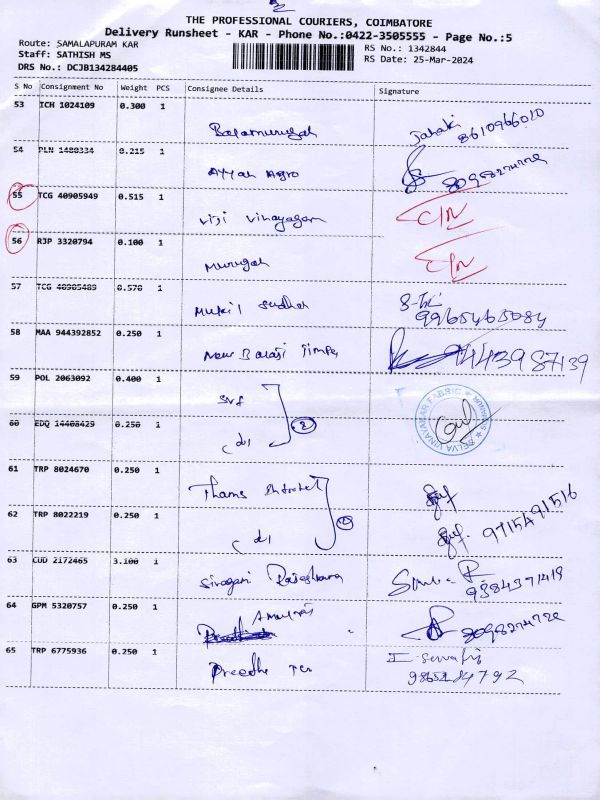 THE PROFESSIONAL COURIERS, COIMBATORE
Delivery Runsheet - KAR - Phone No.:0422-3505555 - Page No.:5
Route: SAMALAPURAM KAR
Staff: SATHISH MS
DRS No.: DCJB134284405
RS No.: 1342844
RS Date: 25-Mar-2024
S No Consignment No Weight PCS Consignee Details Signature
53 ICH 1024109 0.300 1
Balamurugah Janaki
8610966020
54 PLN 1480334 0.215 1
Ayyan Agro 8098274722
55 TCG 40905949 0.515 1
Viji Vinayagam
56 RJP 3320794 0.100 1
Murugah
57 TCG 40905489 0.570 1
Mukil Sudhan
9965465084
58 MAA 944392852 0.250 1
New Balaji 9443987139
59 POL 2063092 0.400 1
SVF
SELVA VINAYAKAR FABRIC
60 EDQ 14408429 0.250 1
2
61 TRP 8024670 0.250 1
Thams
62 TRP 8022219 0.250 1
9715491516
63 CUD 2172465 3.100 1
Sivagami Rajeshwara
9384371419
64 GPM 5320757 0.250 1
8098274722
65 TRP 6775936 0.250 1
Preethe Tex